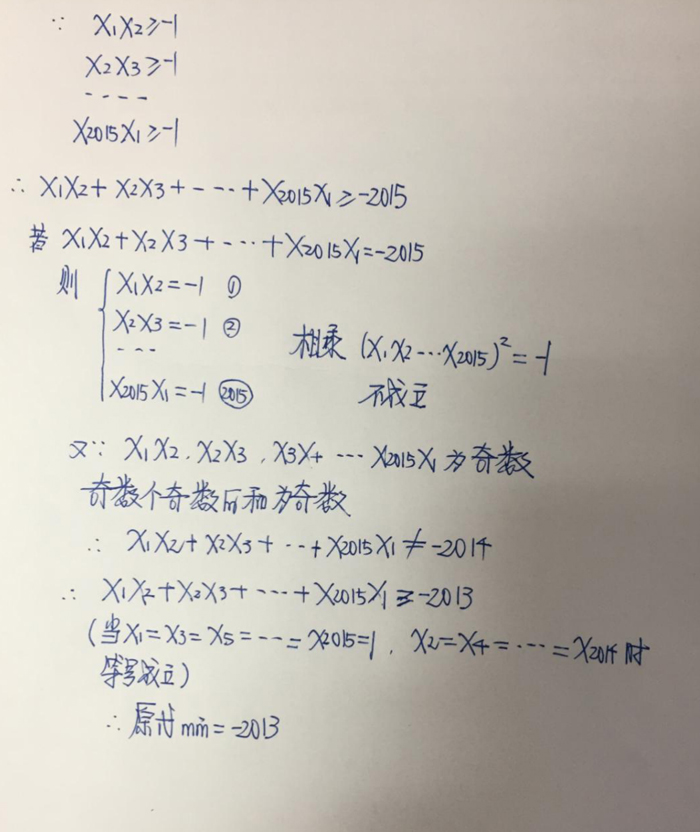 ∵ X₁X₂≥-1
X₂X₃≥-1
- - - -
X₂₀₁₅X₁≥-1
∴ X₁X₂+X₂X₃+- - -+X₂₀₁₅X₁≥-2015
若 X₁X₂+X₂X₃+- - -+X₂₀₁₅X₁=-2015
则 { X₁X₂=-1 ①
X₂X₃=-1 ②
- - -
X₂₀₁₅X₁=-1 (2015)
相乘 (X₁X₂⋯X₂₀₁₅)²=-1
不成立
又∵ X₁X₂,X₂X₃,X₃X₄⋯X₂₀₁₅X₁为奇数
奇数个奇数的和为奇数
∴ X₁X₂+X₂X₃+⋯+X₂₀₁₅X₁≠-2014
∴ X₁X₂+X₂X₃+- - -+X₂₀₁₅X₁≥-2013
(当X₁=X₃=X₅=- - -=X₂₀₁₅=1, X₂=X₄=⋯=X₂₀₁₄时
等号成立)
∴原式min=-2013